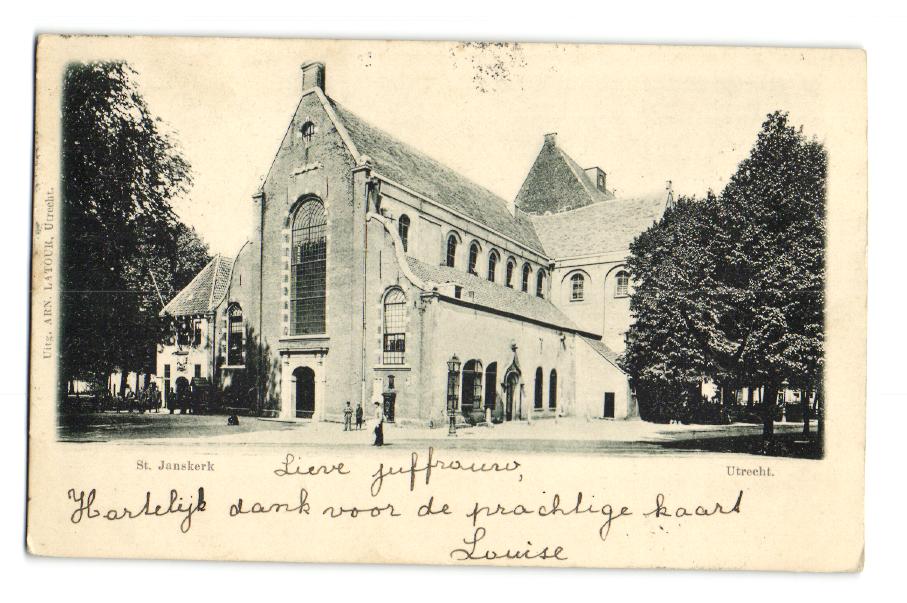 Uitg. ARN. LATOUR, Utrecht.
St. Janskerk
Utrecht.
Lieve juffrouw,
Hartelijk dank voor de prachtige kaart
Louise